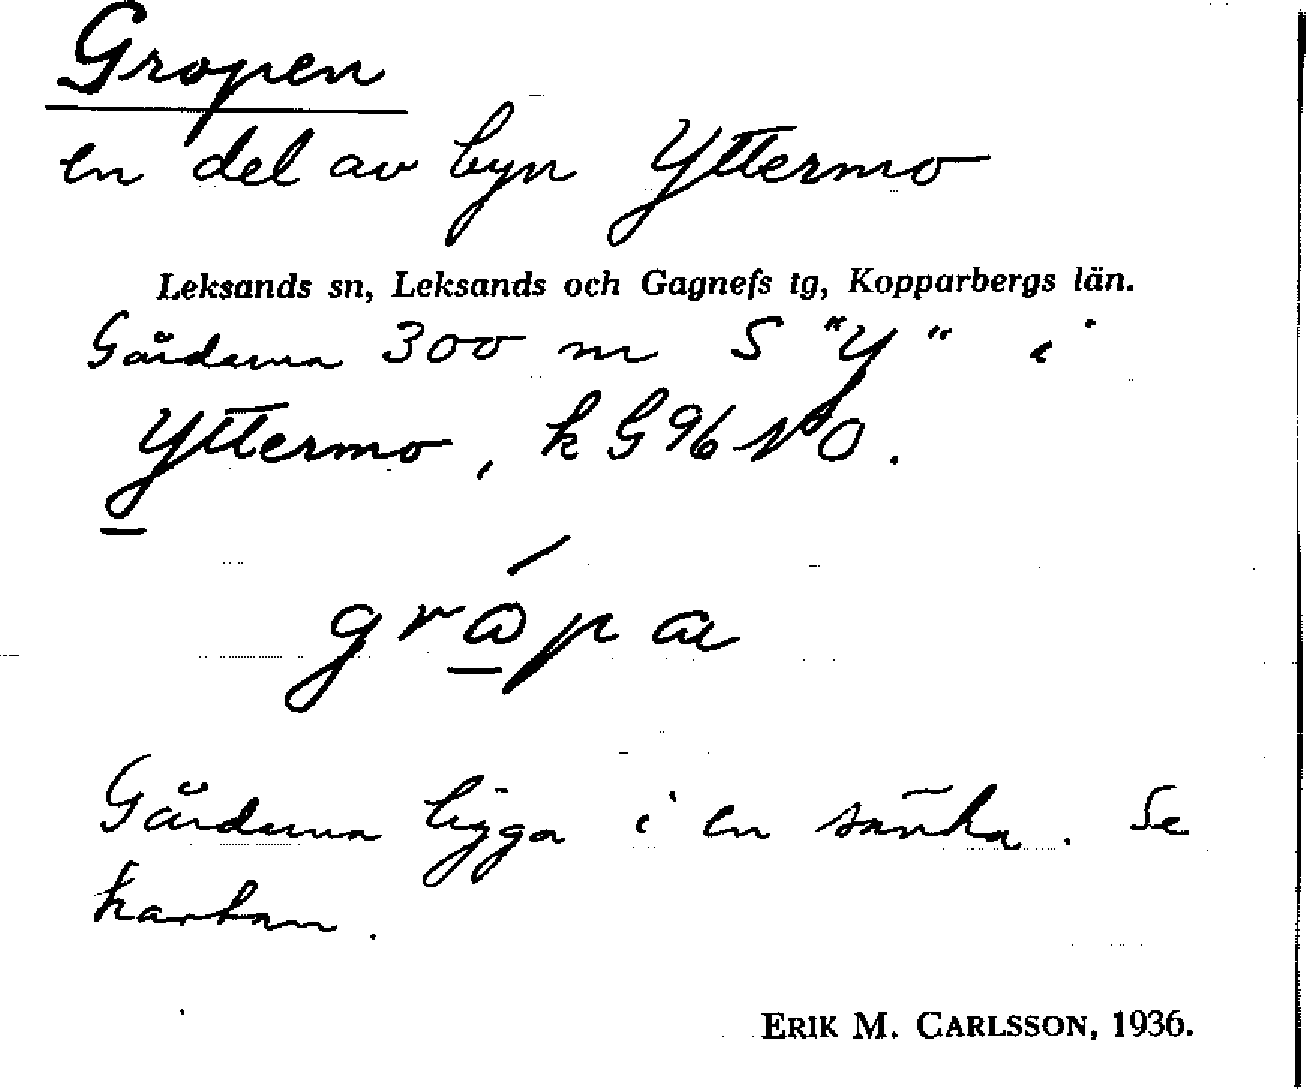 Gropen
en del av byn Yttermo
Leksands sn, Leksands och Gagnefs tg, Kopparbergs län.
Gårdarna 300 m S "Y" i
Yttermo, k G 96 NO.
gråpa
Gårdarna ligga i en sänka. Se
kartan.
ERIK M. CARLSSON, 1936.